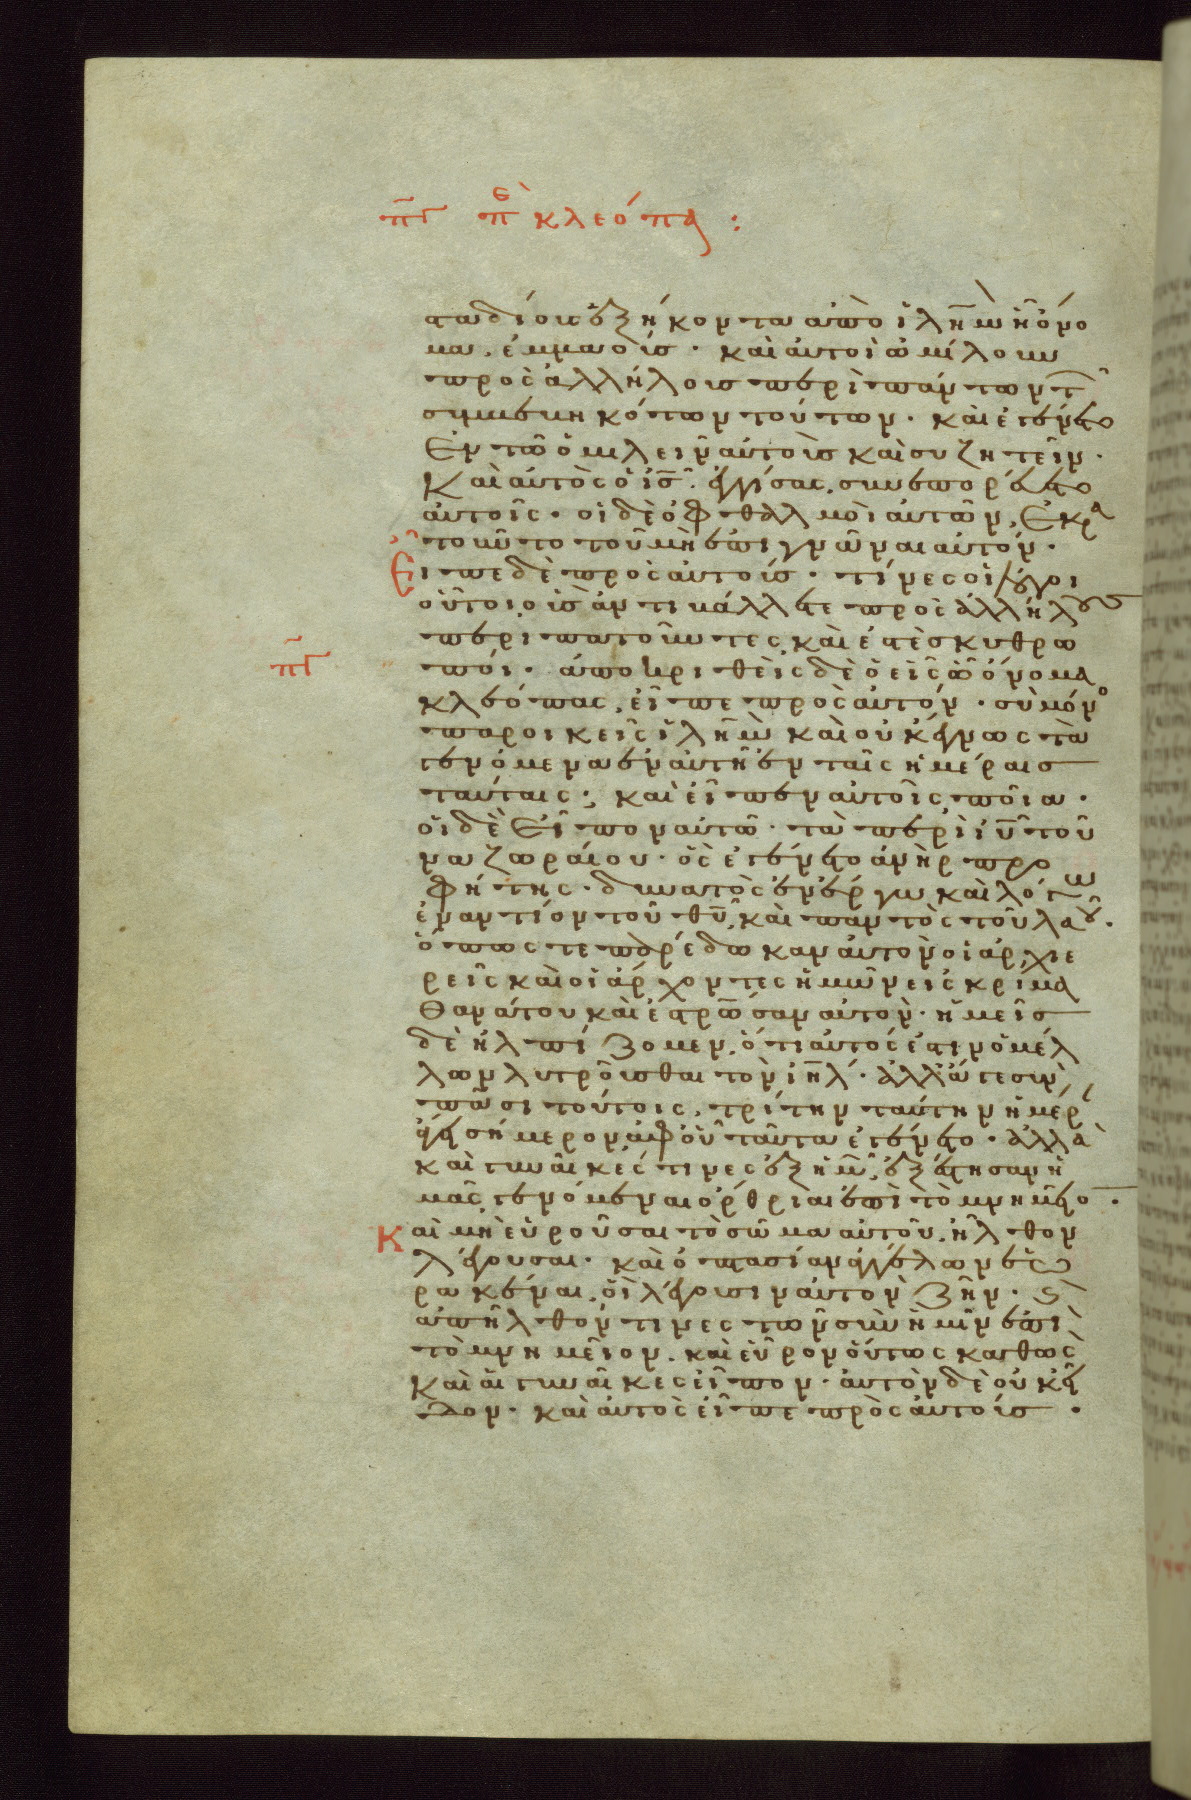 πγ πε κλεόπα :
σταδίους ἑξήκοντα ἀπὸ ἰλημ ἧ ὄνο
μα, ἐμμαούς · καὶ αὐτοὶ ὡμίλουν
πρὸς ἀλλήλους περὶ πάντων τ
συμβεβηκότων τούτων · καὶ ἐγένετο
ἐν τῶ ὁμιλεῖν αὐτοὺς καὶ συζητεῖν ·
καὶ αὐτὸς ὁ ις ἐγγίσας, συνεπορεύετο
αὐτοῖς · οἱ δὲ ὀφθαλμοὶ αὐτῶν, ἐκρα
τοῦντο τοῦ μὴ ἐπιγνῶναι αὐτόν ·
Εἶπε δὲ πρὸς αὐτούς · τίνες οἱ λόγοι
οὗτοι οὓς ἀντιβάλλετε πρὸς ἀλλήλους
πγ περιπατοῦντες, καὶ ἐστὲ σκυθρω
ποί · ἀποκριθεὶς δὲ ὁ εἷς ὧ ὄνομα
κλεόπας, εἶπε πρὸς αὐτόν · σὺ μόνο
παροικεῖς ἰλημ καὶ οὐκ ἔγνως τὰ
γενόμενα ἐν αὐτῆ ἐν ταῖς ἡμέραις
ταύταις ; καὶ εἶπεν αὐτοῖς, ποῖα ·
οἱ δὲ εἶπον αὐτῶ · τὰ περὶ ιυ τοῦ
ναζωραίου · ὃς ἐγένετο ἀνὴρ προ
φήτης · δυνατὸς ἐν ἔργω καὶ λόγω
ἐναντίον τοῦ θυ, καὶ παντὸς τοῦ λαοῦ ·
ὅπως τε παρέδωκαν αὐτὸν οἱ ἀρχιε
ρεῖς καὶ οἱ ἄρχοντες ἡμῶν εἰς κρίμα
θανάτου καὶ ἐσταύρωσαν αὐτὸν · ἡμεῖς
δὲ ἠλπίζομεν, ὅτι αὐτός ἐστιν ὁ μέλ
λων λυτροῦσθαι τὸν ιηλ · ἀλλά γε σὺν
πᾶσι τούτοις, τρίτην ταύτην ἡμέρ
ἄγει σήμερον, ἀφ οὗ ταῦτα ἐγένετο · ἀλλὰ
καὶ γυναῖκές τινες ἐξ ἡμ, ἐξέστησαν ἡ
μᾶς, γενόμεναι ὄρθριαι ἐπὶ τὸ μνημεῖο ·
Καὶ μὴ εὑροῦσαι τὸ σῶμα αὐτοῦ, ἦλθον
λέγουσαι · καὶ ὀπτασίαν ἀγγέλων ἑω
ρακέναι, οἳ λέγουσιν αὐτὸν ζῆν · καὶ
ἀπῆλθόν τινες τῶν σὺν ἡμῖν ἐπὶ
τὸ μνημεῖον, καὶ εὗρον οὕτως καθὼς
καὶ αἱ γυναῖκες εἶπον · αὐτὸν δὲ οὐκ εἶ
δον · καὶ αὐτὸς εἶπε πρὸς αὐτούς ·